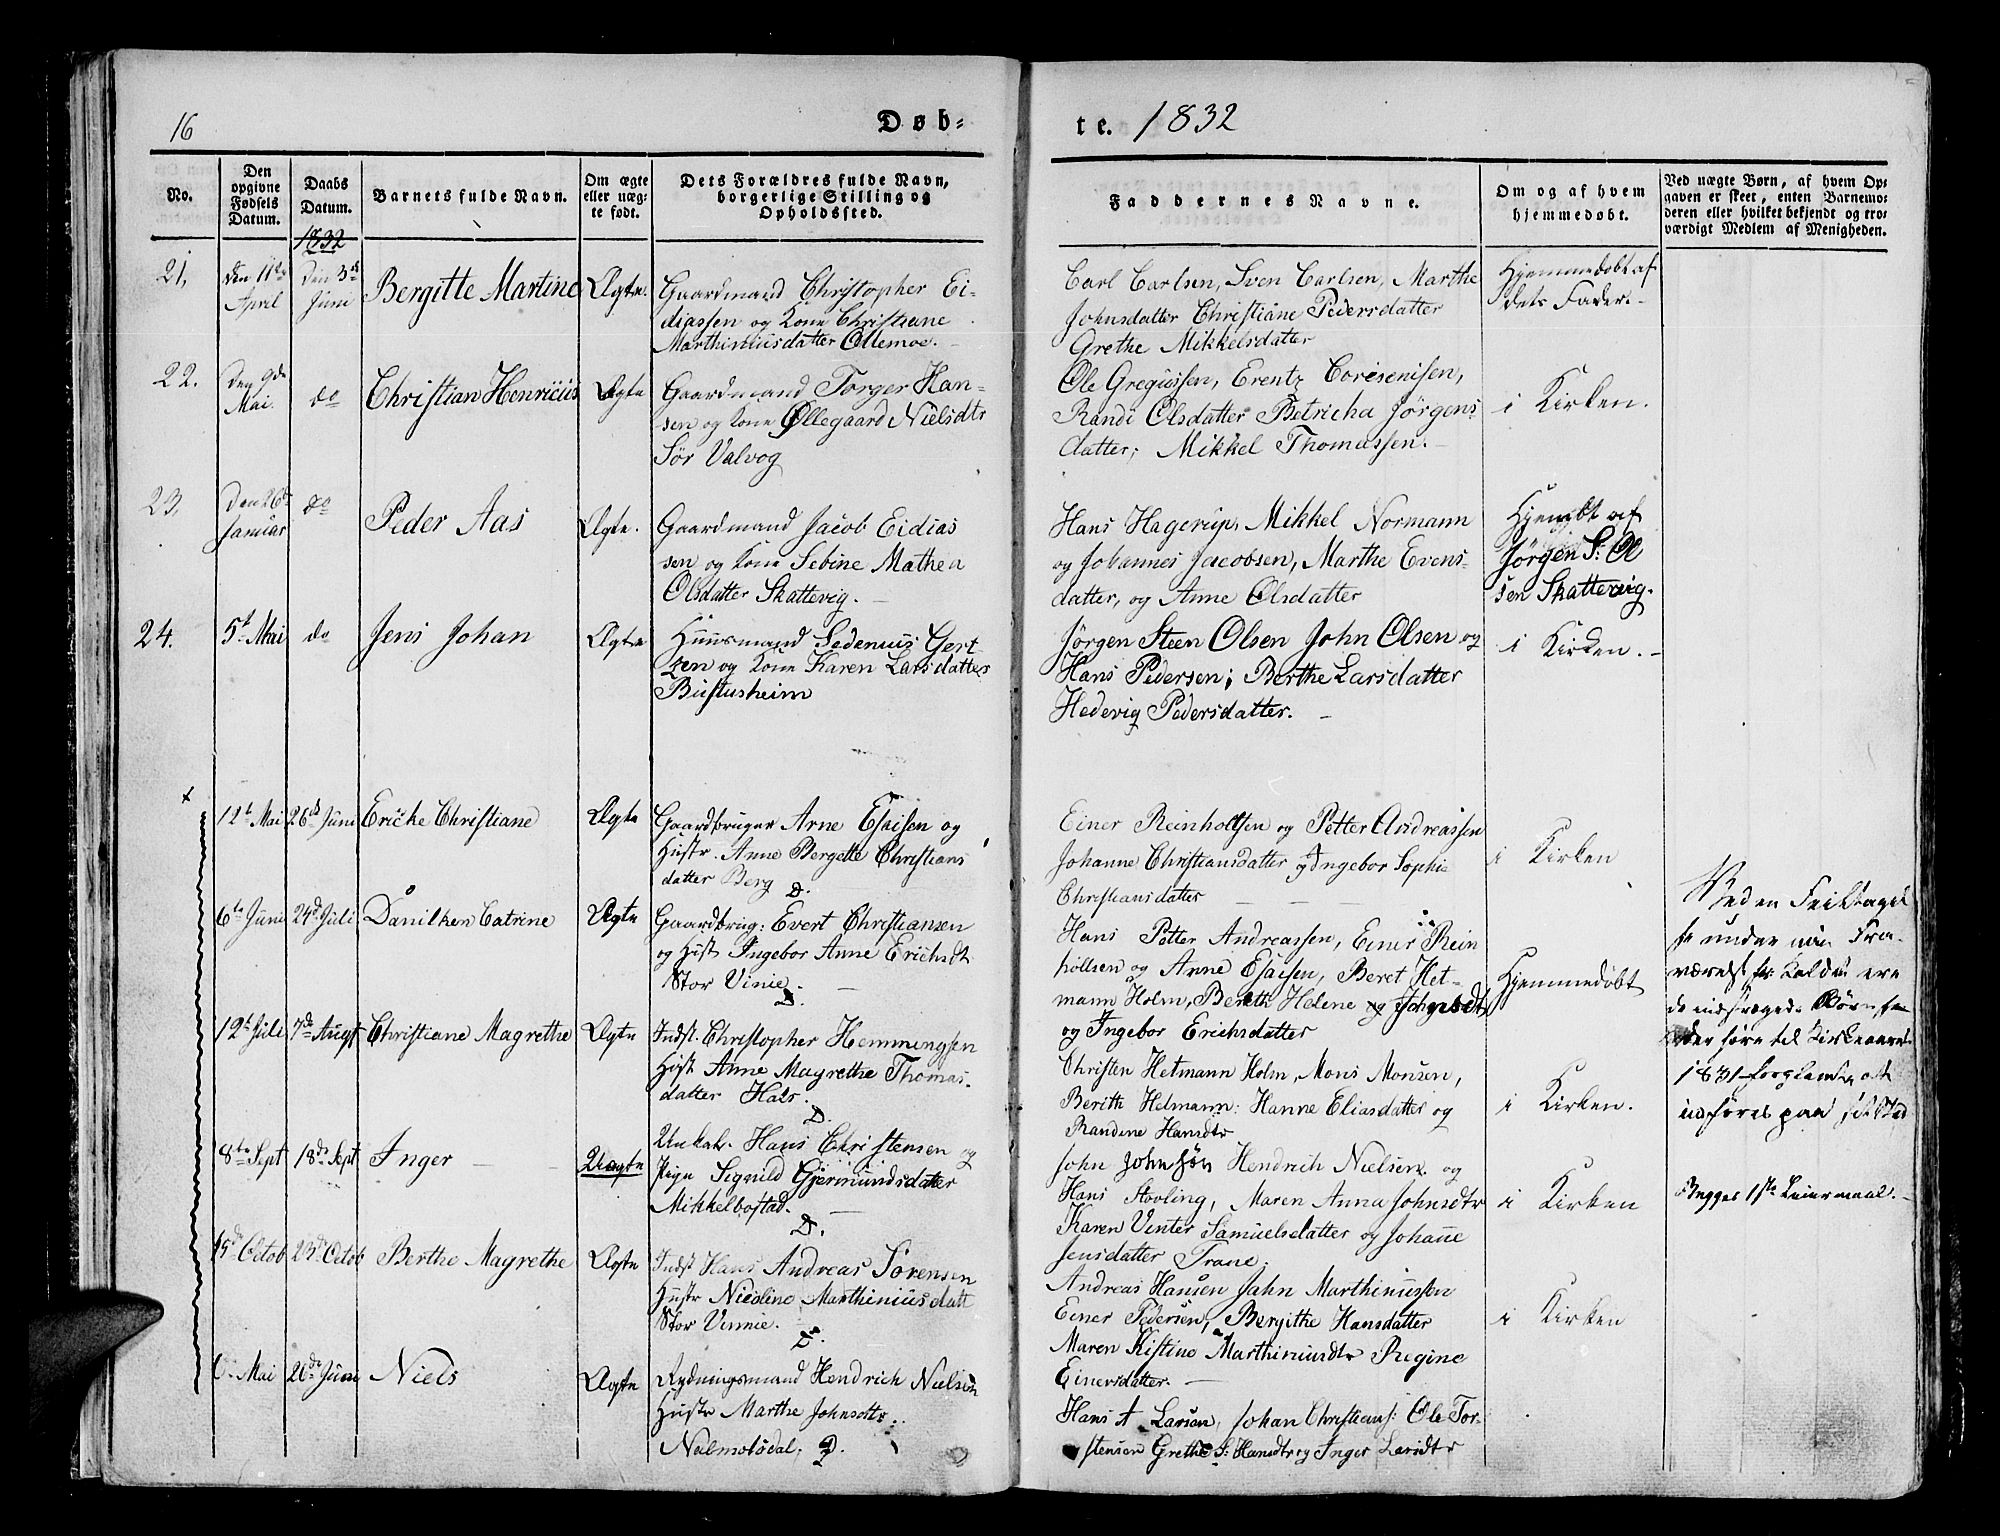 16
Døb-
te. 1832
No.
Den opgivne Fødsels Datum.
Daabs Datum.
1832
Barnets fulde Navn.
Om ægte eller uægte født.
Dets Forældres fulde Navn, borgerlige Stilling og Opholdssted.
Faddernes Navne.
Om og af hvem hjemmedøbt.
Ved uægte Børn, af hvem Opgaven er skeet, enten Barnemoderen eller hvilket bekjendt og troværdigt Medlem af Menigheden.
21.
Den 11te April
Den 3de Juni
Bergitte Martine
Ægte.
Gaardmand Christopher Ei-
diassen og Kone Christiane
Marthiniusdatter Ollemoe.
Carl Carlsen, Sven Carlsen, Marthe
Johnsdatter Christiane Pedersdatter
Grethe Mikkelsdatter
Hjemmedøbt af
dets Fader.
22.
Den 9de Mai.
do
Christian Henricus
Ægte
Gaardmand Torger Han-
sen og Kone Øllegaard Nielsdtr
Sör Valvog
Ole Gregussen, Erentz
Randi Olsdatter Petricha Jörgens
datter; Mikkel Thomassen.
i Kirken.
23.
Den 26de Januar
do
Peder Aas
Ægte.
Gaardmand Jacob Eidias
sen og Kone Sebine Mathea
Olsdatter Skattevig.
Hans Hagerup, Mikkel Normann
og Johannes Jacobsen, Marthe Evens-
datter, og Anne Olsdatter
Hjemdbt af
Jørgen S: Ol
sen Skattevig.
24.
5t Mai
do
Jens Johan
Ægte
Huusmand Sedenius Gert
zen og Kone Karen Larsdatter
Bustusheim
Jørgen Steen Olsen John Olsen og
Hans Pedersen; Berthe Larsdatter
Hedevig Pedersdatter.
i Kirken.
12t Mai
26de Juni
Ericke Christiane
Ægte
Gaardbruger Arne Esaisen og
Hustr. Anne Bergette Christians
datter Berg D.
Einer Reinholtsen og Petter Andreassen
Johanne Christiansdatter og Ingebor Sophie
Christiansdatter
i Kirken
6te Juni
24de Juli
Danilken Catrine
Ægte
Gaardbrug: Evert Christiansen
og Hust Ingebor Anne Erichsdt
Stor Vinie. D.
Hans Petter Andreassen, Einer Rein
holtsen og Anne Esaisen, Beret Het-
mann Holm, Bereth Helene og Johnsdtr
og Ingebor Erichsdatter
Hjemmedøbt
12t Juli
7de Augst
Christiane Magrethe
Ægte
Indst. Christopher Hemmingsen
Hust Anne Magrethe Thomas-
datter Hals. D.
Christen Hetmann Holm, Mons Monsen,
Berith Hetmann: Hanne Eliasdatter og
Randine Hansdtr
i Kirken.
Ved en Feiltagel
se under min Fra-
værelse
1831
8te Sept
18de Sept
Inger
Uægte
Unkal. Hans Christensen og
Pige Sigrild Gjermundsdatter
Mikkelbostad. D.
John Johnsön Hendrich Nielsen og
Hans Stovling, Maren Anna Johnsdtr
Karen Vinter Samuelsdatter og Johanne
Jensdatter Trane.
i Kirken
Begges 1ste Leiermaal.
15de Octob
23de Octob
Berthe Magrethe
Ægte
Indst Hans Andreas Sörensen
Hustr Nicoline Marthiniusdatt
Stor Vinnie. D.
Andreas Hansen Jahn Marthinussen
Einer Pedersen, Bergithe Hansdatter
Maren Kistine Marthinusdtr Regine
Einersdatter.
i Kirken
6. Mai
26de Juni
Niels
Ægte
Rydningsmand Hendrich Nielsen
Hustr Marthe Johnsdtr.
D.
Hans A Larsen, Johan Christians: Ole Tor-
stensen Grethe S: Hansdtr og Inger Larsdtr